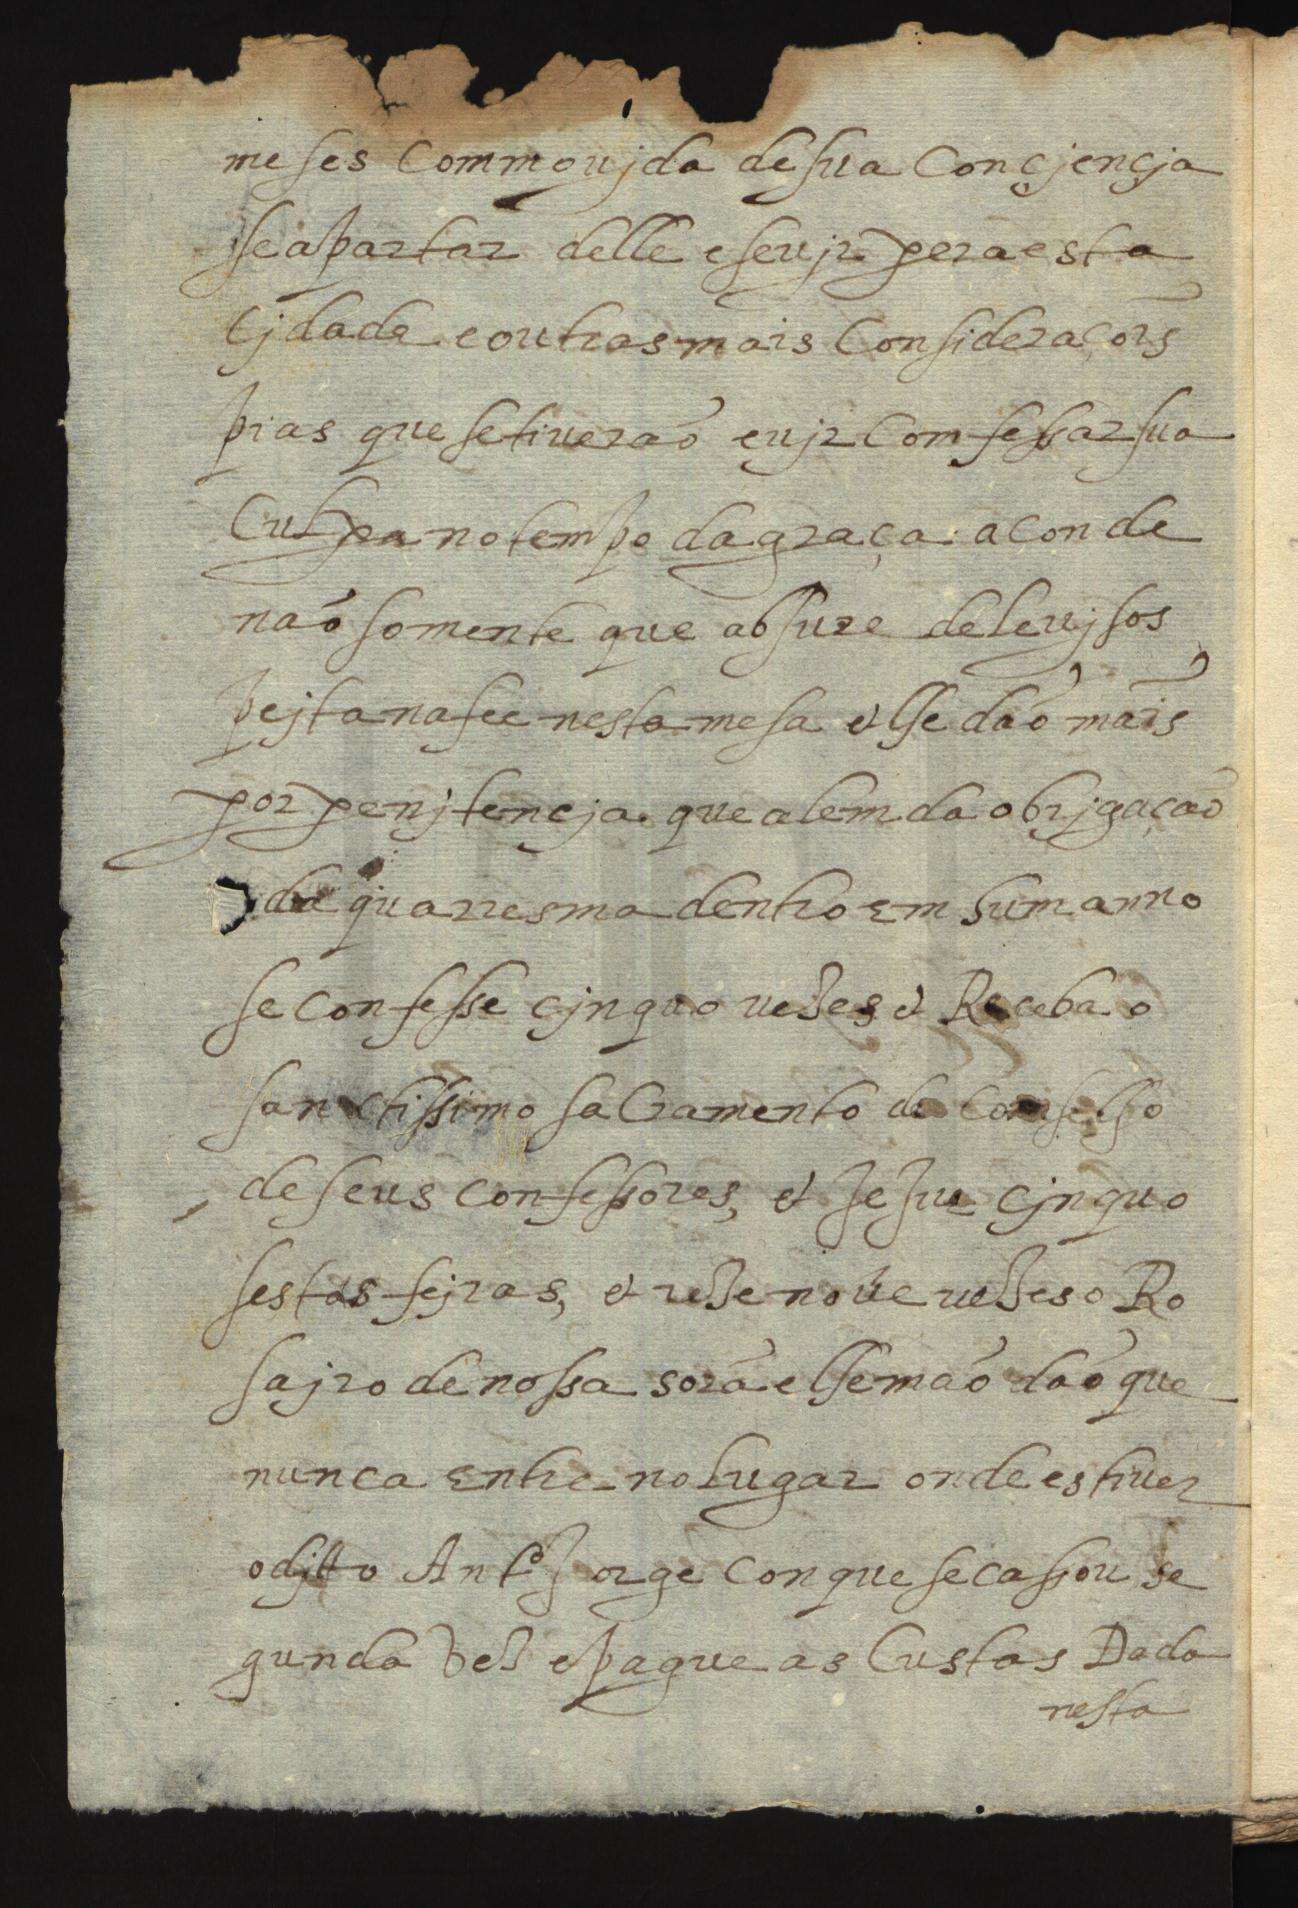 meses Commouida de sua Conçjençja
se apartar delle e se vjr pera esta
Cjdade e outras mais Consideraçõis
pias que se tiuerão e vjr Comfessar sua
Culpa no tempo da graça. a condenão
somente que abiure de leuj sos
pejta na fee nesta mesa et lhe dão mais
por penjtencja. que alem da obrjgação
da quarresma dentro em hum anno
se confesse cjnquo uezes et Receba o
sanctissimo saCramento de Comselho
de seus confessores, et jejue cjnquo
sestas fejras, et reze noue uezes o Ro
sajro de nossa sorã e lhe mãodão que
nunca Entre no lugar onde estiuer
o djtto Ant.º Jorge con que se cassou se
gunda vez e pague as Custas Dada
nesta